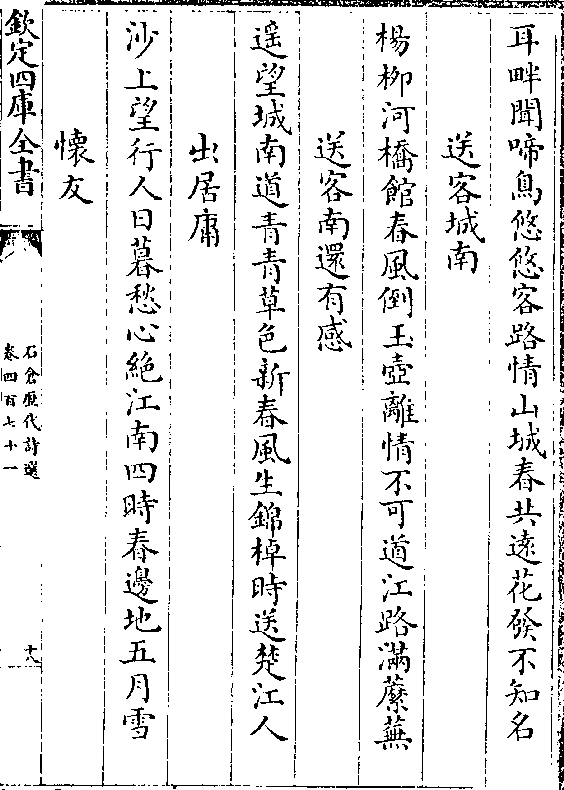 耳畔聞啼鳥悠悠客路情山城春共遠花發不知名
送客城南
楊柳河橋館春風倒玉壺離情不可道江路滿蘼蕪
送客南還有感
遥望城南道青青草色新春風生錦棹時送楚江人
出居庸
沙上望行人日暮愁心絶江南四時春邊地五月雪
懷友
欽定四庫全書
石倉歷代詩選
卷四百七十一
十八